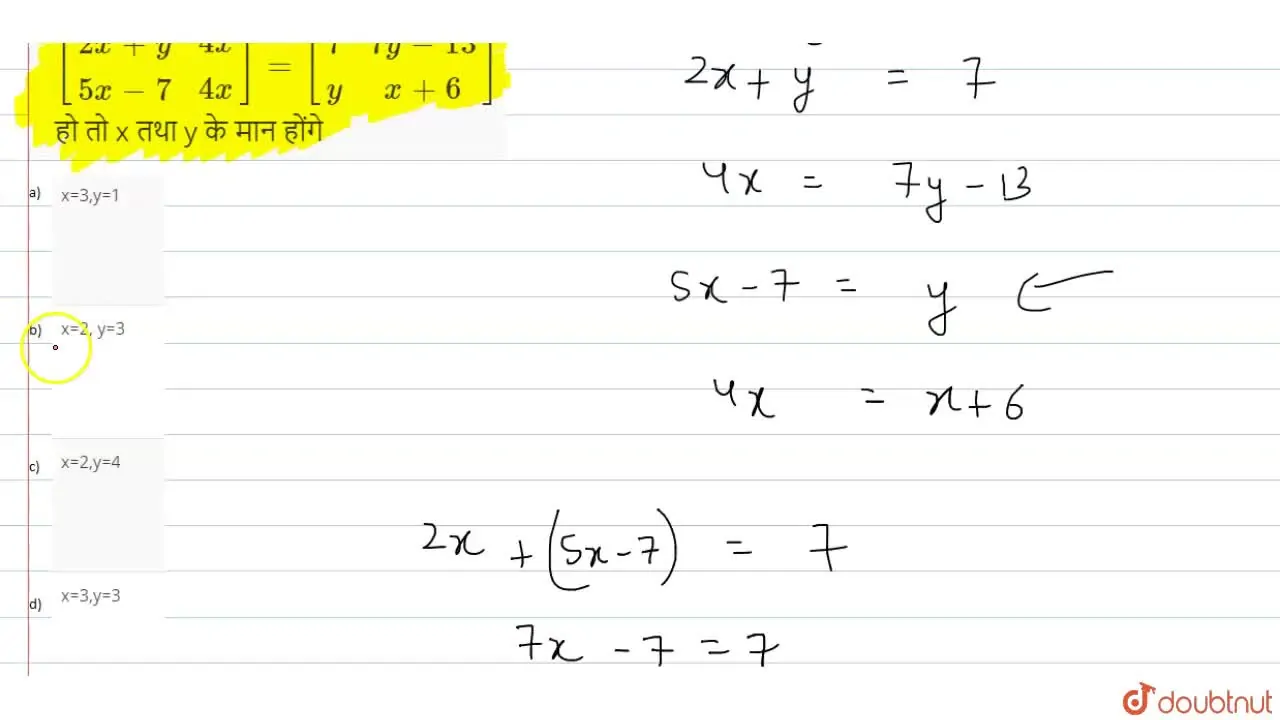 [2x + y 4x] = [7 7y − 13]
[5x − 7 4x] [y x + 6]
हो तो x तथा y के मान होंगे
a) x=3,y=1
b) x=2, y=3
c) x=2,y=4
d) x=3,y=3
2x + y = 7
4x = 7y − 13
5x − 7 = y
4x = x + 6
2x + (5x − 7) = 7
7x − 7 = 7
doubtnut